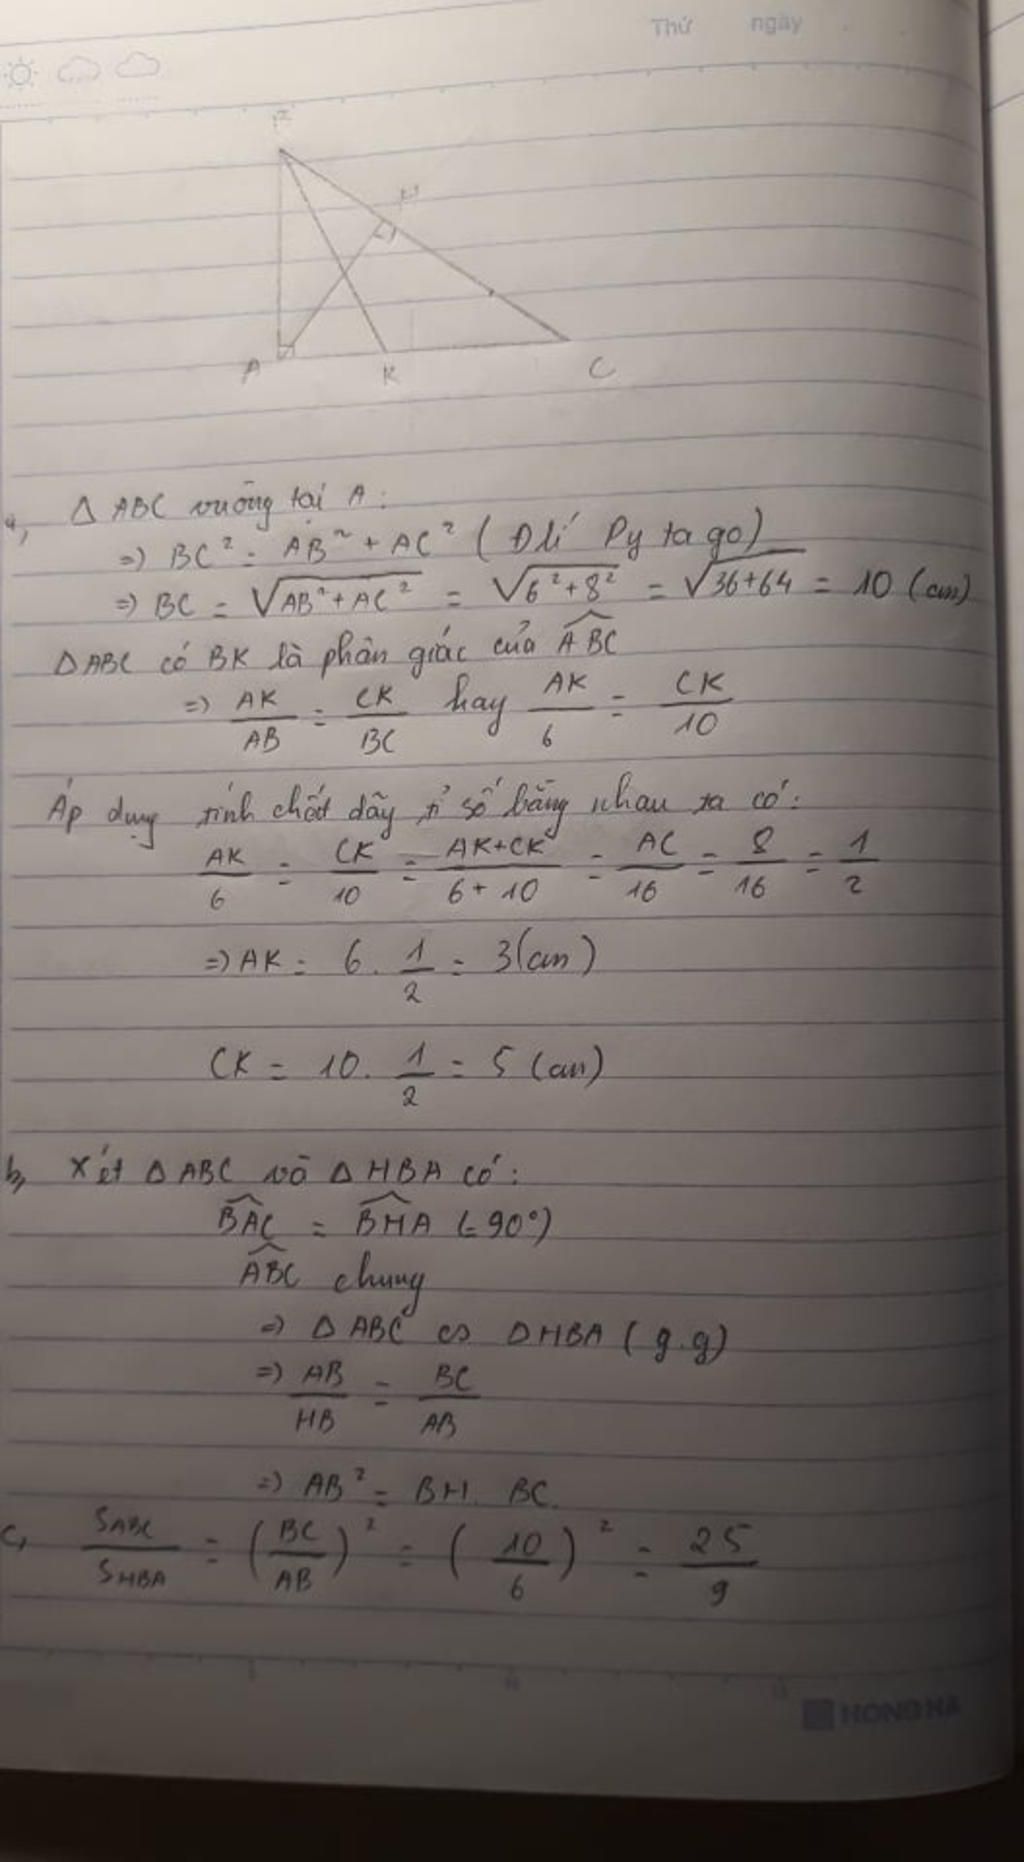 Thứ ngày
B
H
A K C
a, Δ ABC vuông tại A:
=> BC² = AB² + AC² (Đlí Py ta go)
=> BC = √AB²+AC² = √6²+8² = √36+64 = 10 (cm)
Δ ABC có BK là phân giác của ABC
=> AK/AB = CK/BC hay AK/6 = CK/10
Áp dụng tính chất dãy tỉ số bằng nhau ta có:
AK/6 = CK/10 = AK+CK/6+10 = AC/16 = 8/16 = 1/2
=> AK = 6 . 1/2 = 3 (cm)
CK = 10 . 1/2 = 5 (cm)
b, Xét Δ ABC và Δ HBA có:
BAC = BHA (= 90°)
ABC chung
=> Δ ABC ∽ Δ HBA (g.g)
=> AB/HB = BC/AB
=> AB² = BH . BC.
c, S ABC/S HBA = (BC/AB)² = (10/6)² = 25/9
HONG HA